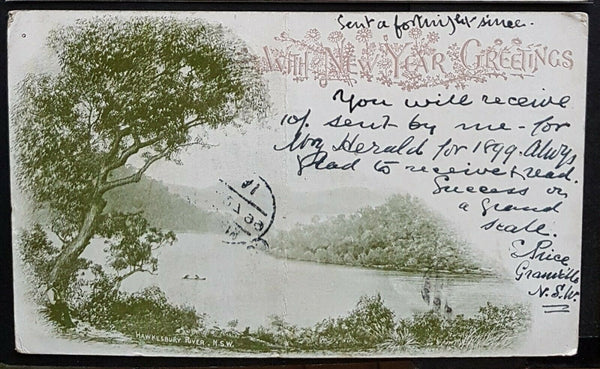 Sent a fortnight since.
WITH NEW YEAR GREETINGS
You will receive
10/. sent by me - for
Herald for 1899. Always
Glad to receive & read.
Success on
a grand
scale.
E Price
Granville
N.S.W.
HAWKESBURY RIVER, N.S.W.